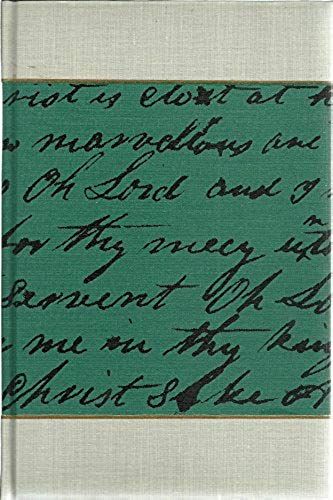 rist is clost at h
marvellous are
Oh Lord and I
for thy mecy unto
servent Oh Lo
me in thy king
Christ Sake